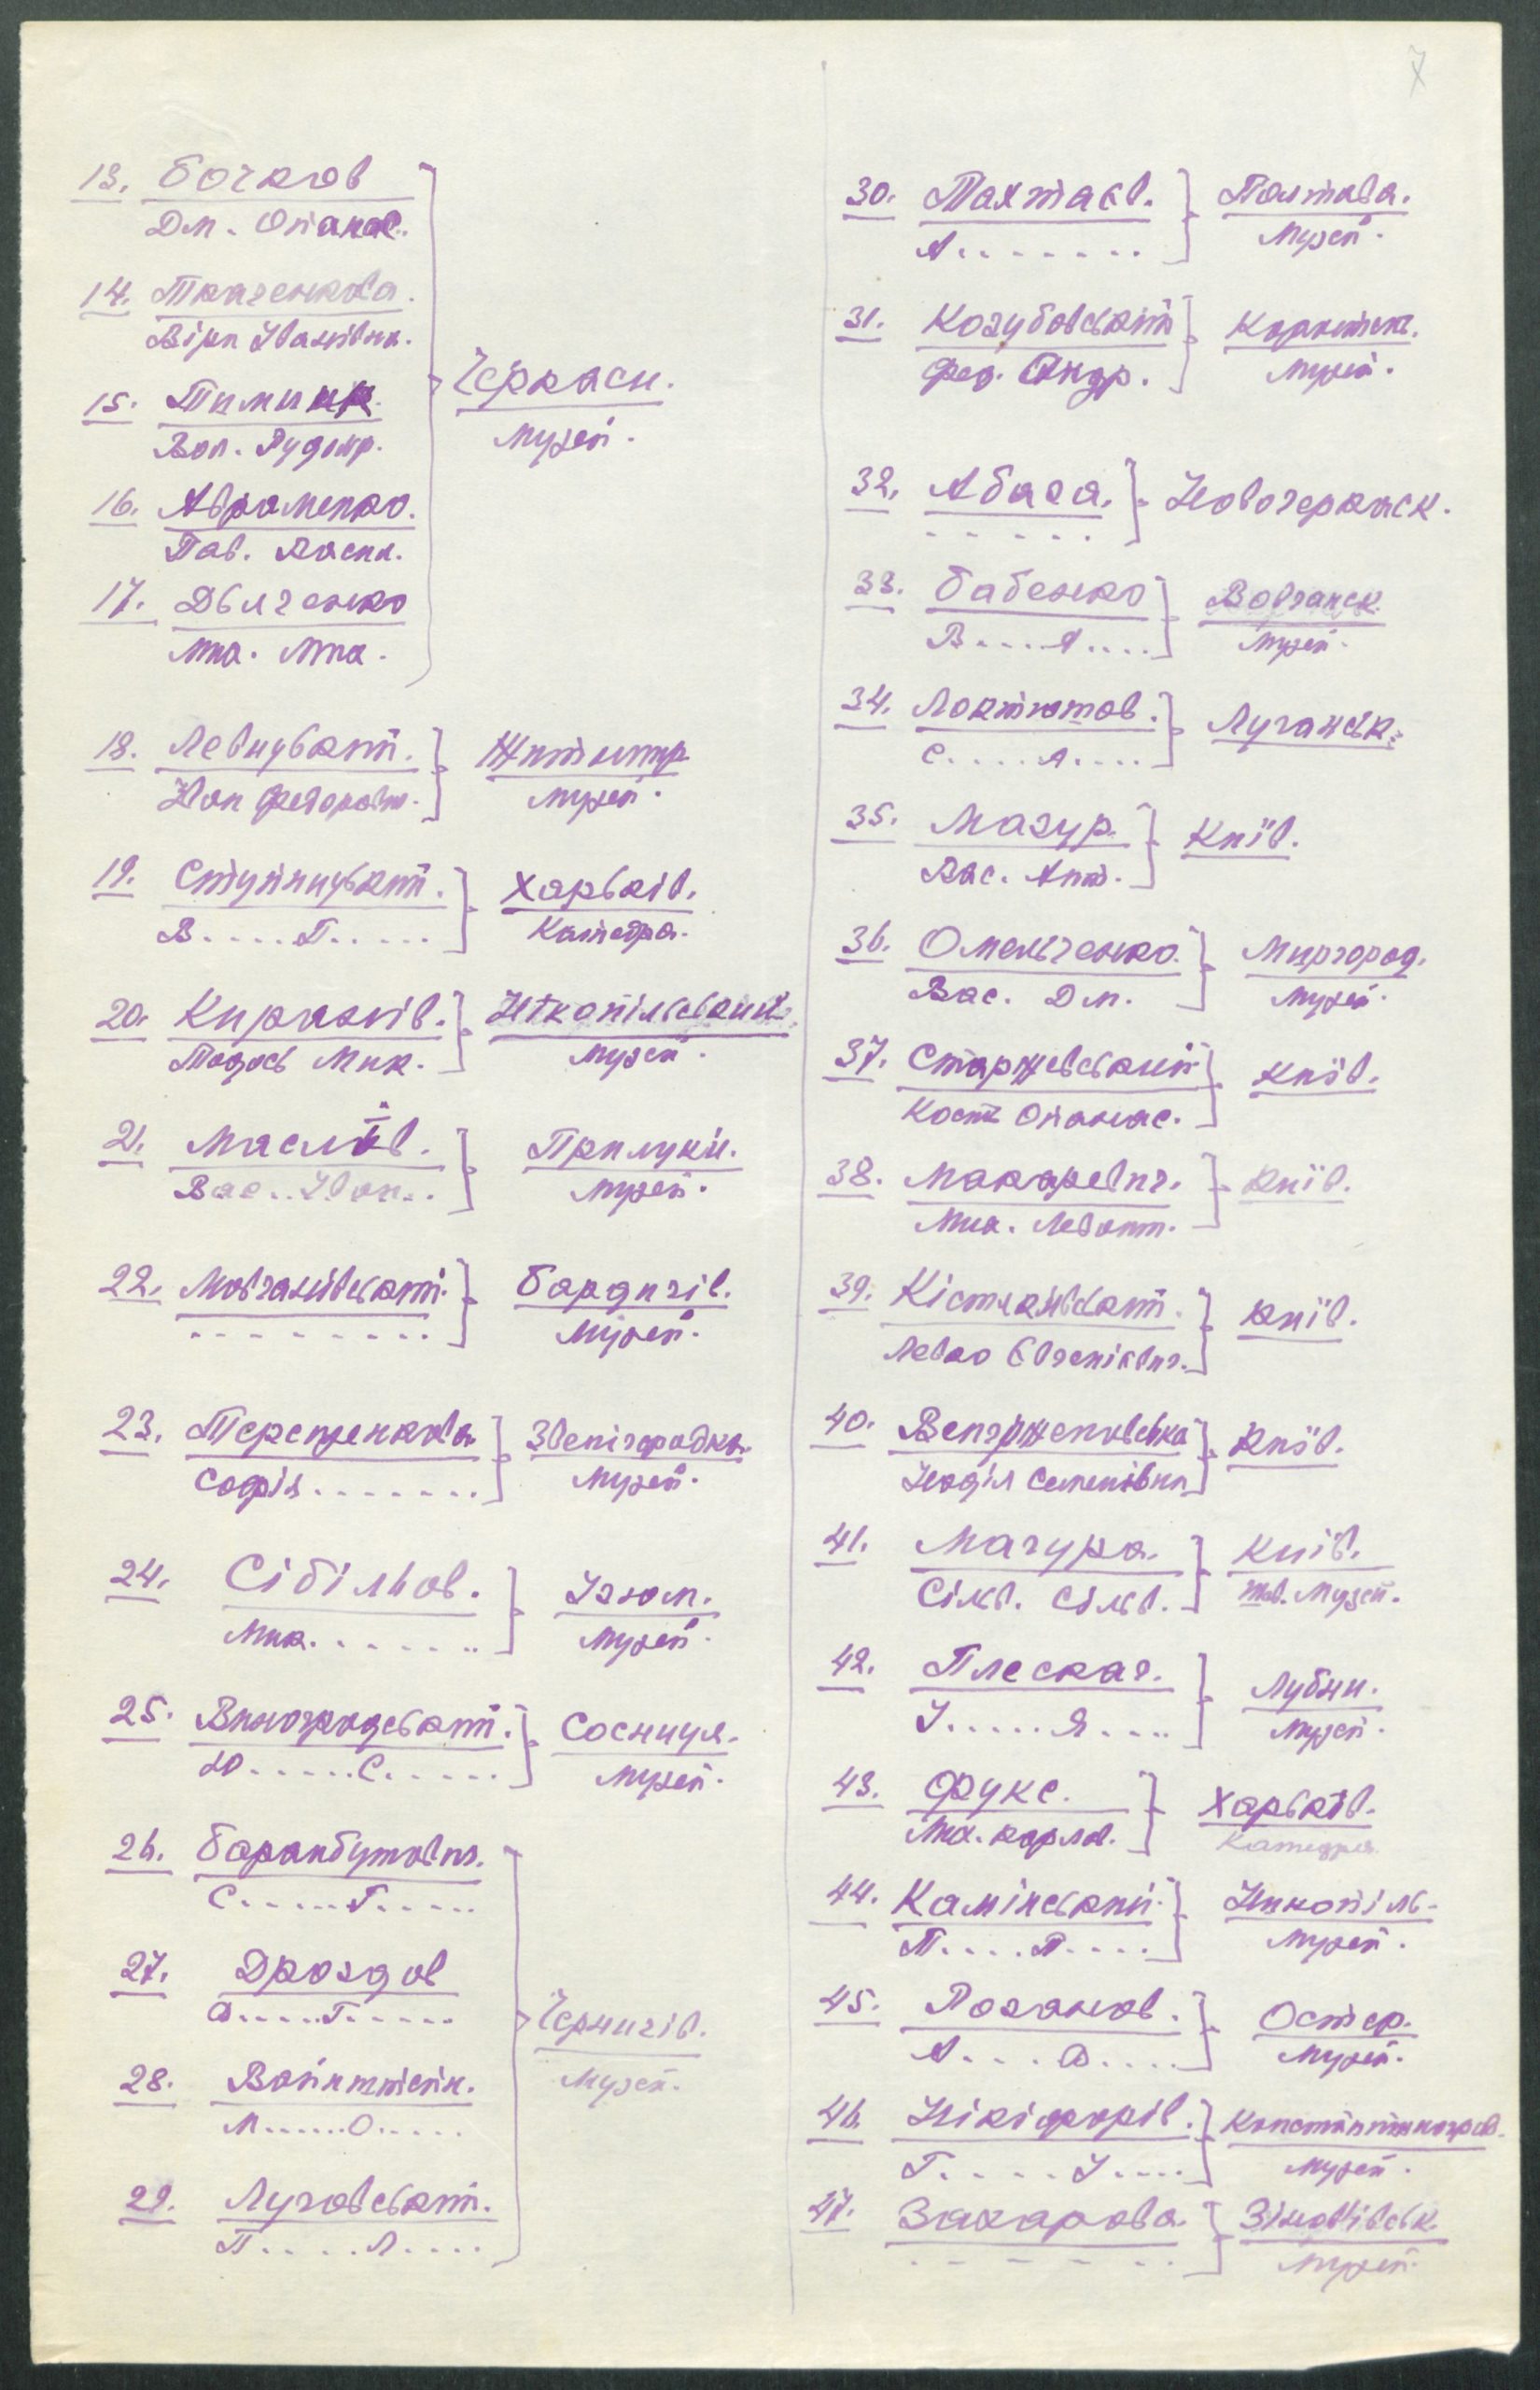 7
13. Бочков
Дм. Опанас.
14. Ткаченкова.
Віра Іванівна.
15. Тимник.
Вол. Рудольф.
16. Авраменко.
Пав.
17. Дяченко
Мик. Мик.
Черкаси.
Музей.
18. Левицький.
Іван Федорович.
Житомир.
музей.
19. Ступницький.
В.....П.....
Харьків.
Катедра.
20. Киранів.
Тодось Мик.
Нікопільський
музей.
21. Маслів.
Вас.. Іван..
Прилуки.
музей.
22. Мовчанівський.
- - - - - - - -
Бердичів.
Музей.
23. Терещенкова
Софія.......
Звенігородка.
Музей.
24. Сібільов.
Мик.......
Ізюм.
Музей.
25. Виноградський.
Ю.....С.....
Сосниця.
музей.
26. Баранбутович.
С.....Г.....
27. Дроздов
Ф.....Г.....
28. Вайнштейн.
М.....О.....
29. Луговський.
П.....Л....
Чернигів.
Музей.
30. Тахтаєв.
А.......
Полтава.
Музей.
31. Козубовський
Фед. Андр.
Коростень.
музей.
32. Абаза.
- - - - -
Новочеркаск.
33. Бабенко
В....А....
Вовчанск.
Музей.
34. Локтютов.
С.....А....
Луганськ.
35. Мазур.
Вас. Ант.
Київ.
36. Омельченко.
Вас. Дм.
Миргород.
музей.
37. Старжевський
Кост. Опанас.
Київ.
38. Макаревич.
Мик. Левонт.
Київ.
39. Кістяківський.
Левко Євгенієвич.
Київ.
40. Венгрженовська
Надія Семенівна
Київ.
41. Магура.
Сільв. Сільв.
Київ.
Музей.
42. Плескач.
І.....Я....
Лубни.
Музей.
43. Фукс.
Мих. Карлов.
Харьків.
Катедра.
44. Камінський.
П....П....
Никопіль-
Музей.
45. Розанов.
А....Ф....
Остер.
Музей.
46. Нікіфорів.
Г.....І....
Константиноград.
музей.
47. Захарова.
- - - - - -
Зіновієвськ.
Музей.